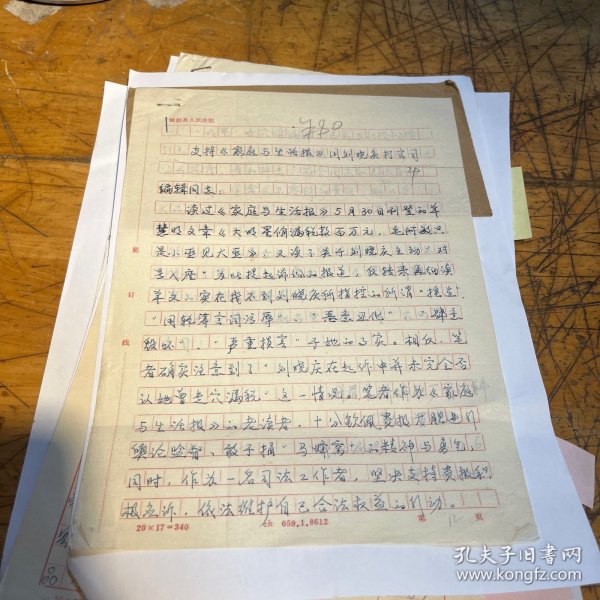 桃源县人民法院
780
支持《家庭与生活报》同刘晓庆打官司
编辑同志:
读过《家庭与生活报》5月30日刊登的羊
慧明文章《大明星偷漏税款百万元,毛阿敏只
是小巫见大巫》,又读了关于刘晓庆主动"对
号入座"为此提起诉讼的报道,
羊文,实在找不到刘晓庆所指控的所谓"捏造"
"用轻薄言词污辱"、"恶意丑化"、"肆意
毁坏"、"严重损害"于她的事实。相反,笔
者确实注意到了"刘晓庆在起诉中并未完全否
认她曾走穴漏税"这一情况。笔者作为《家庭
与生活报》的老读者,十分钦佩贵报大胆进行
舆论监督、敢于捅"马蜂窝"的精神与勇气,
同时,作为一名司法工作者,坚决支持贵报积
极应诉,依法维护自己合法权益的行动。
装
订
线
20×17=340
ch 059.1.8612
第 12 页
孔夫子旧书网
www.kongfz.com